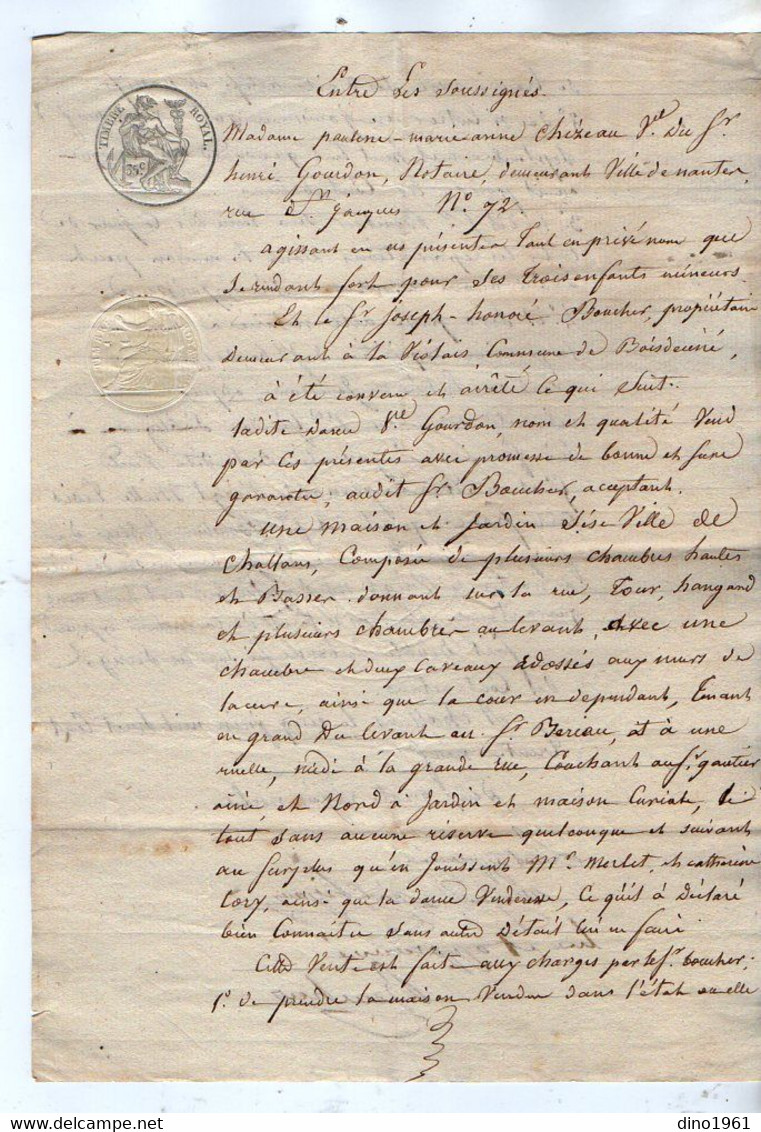 TIMBRE ROYAL.
35c
Entre Les Soussignés.
Madame pauline-marie anne Chizeau Ve. Du Sr.
henri Gourdon, Notaire, demeurant Ville de nantes,
rue St. Jacques No. 72.
agissant en ces présentes Tant en privé nom que
Se rendant fort pour Ses Trois enfants mineurs.
Et le Sr. joseph-honoré Boucher, propriétaire
Demeurant à la Violais Commune de Boisdeciné,
à été convenu et arrêté ce qui Suit.
Ladite dame Ve. Gourdon, nom et qualité Vend
par ces présentes avec promesse de bonne et sure
garantie, audit Sr. Boucher, acceptant.
une maison et Jardin Sise Ville de
Challans, Composée de plusieurs chambres hautes
et Basses donnant sur la rue, Cour, hangard
et plusieurs chambres au levant, Avec une
chambre et deux Caveaux adossés aux murs de
la cure, ainsi que la cour en dependant, Tenant
en grand Du levant au Sr. Beriau, et à une
ruelle, midi à la grande rue, Couchant au Sr. gautier
ainé, et Nord à Jardin et maison Curiale, le
tout Sans aucune réserve quelconque et suivant
au Surplus qu'en Jouissent Mr. Merlet, et catherine
Cory, ainsi que la dame Venderesse, Ce qu'il à Déclaré
bien Connaitre Sans autre Détail lui en faire
Cette Vente est faite aux charges par le Sr. boucher,
1o. de prendre la maison Vendue dans l'état ou elle
delcampe.net
dino1961